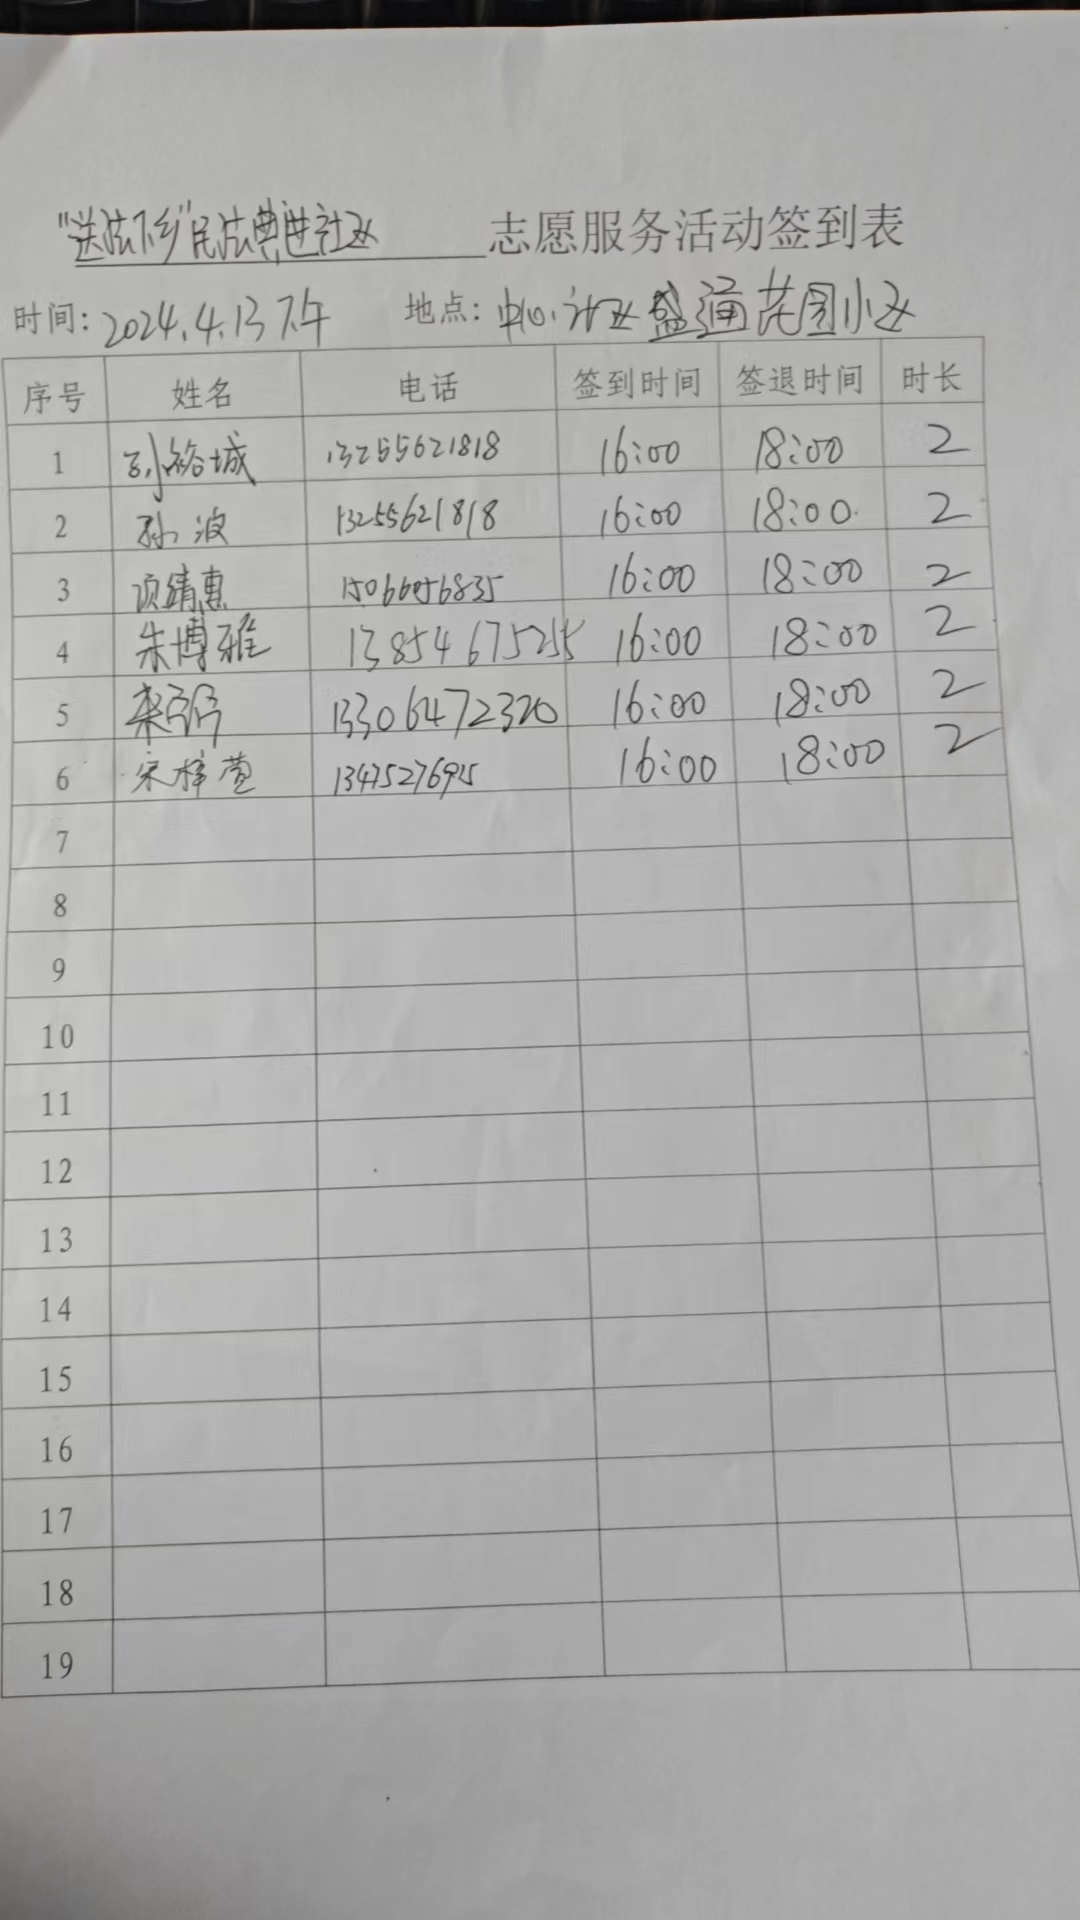 “送法下乡”民法典进社区 志愿服务活动签到表
时间: 2024.4.13下午 地点: 中心社区盛通花园小区
序号 姓名 电话 签到时间 签退时间 时长
1 孙裕城 13255621818 16:00 18:00 2
2 孙波 13255621818 16:00 18:00 2
3 项靖惠 15066056835 16:00 18:00 2
4 朱博雅 13854675255 16:00 18:00 2
5 13306472320 16:00 18:00 2
6 宋梓萱 13475276925 16:00 18:00 2
7
8
9
10
11
12
13
14
15
16
17
18
19